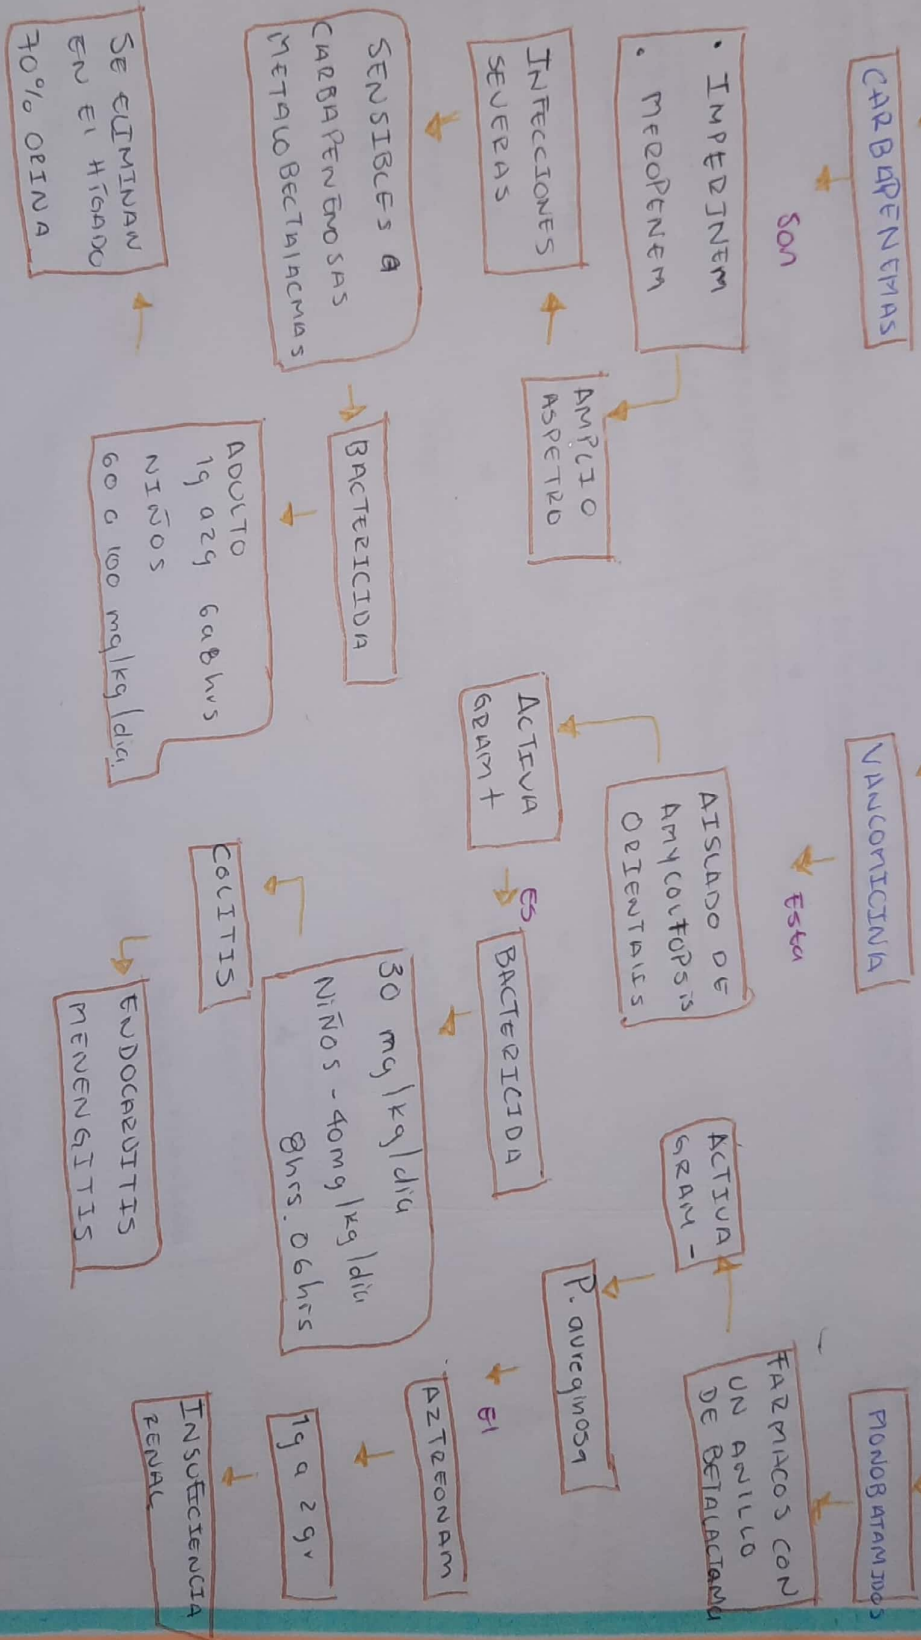 CARBAPENEMAS
Son
• IMPERINEM
• MEROPENEM
AMPLIO
ASPETRO
INFECCIONES
SEVERAS
SENSIBLES A
CARBAPENEMOSAS
METALOBECTALACMAS
BACTERICIDA
ADULTO
1g a 2g 6a8hrs
NIÑOS
60 a 100 mg/kg/dia.
SE ELIMINAN
EN El HÍGADO
70% ORINA
VANCOMICINA
Esta
AISLADO DE
AMYCOLTOPSIS
ORIENTALS
ACTIVA
GRAM +
ES
BACTERICIDA
30 mg/kg/dia
NIÑOS - 40mg/kg/dia
8hrs. 06hrs
COLITIS
ENDOCARDITIS
MENENGITIS
MONOBATAMIDOS
FARMACOS CON
UN ANILLO
DE BETALACTAMA
ACTIVA
GRAM -
P. aureginosa
El
AZTREONAM
1g a 2gr
INSUFICIENCIA
RENAL